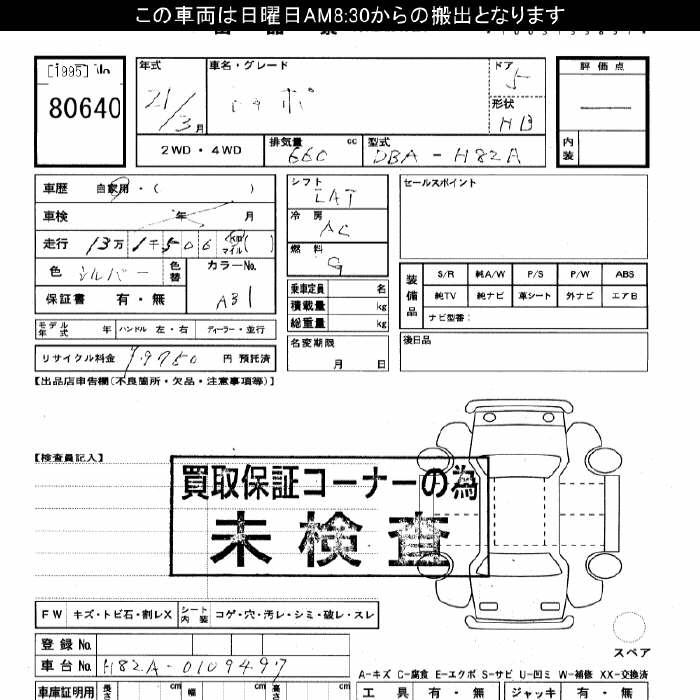 この車両は日曜日AM8:30からの搬出となります
[1995]
80640
年式
21/3月
車名・グレード
トッポ
ドア
5
形状
HB
評価点
内装
2WD・4WD
排気量
660 cc
型式
DBA-H82A
車歴 自家用・( )
車検 年 月
走行 13万 1千 506 km マイル( )
色 シルバー 色替
カラーNo.
A31
保証書 有・無
シフト
冷房
AC
燃料
G
乗車定員 名
積載量 kg
総重量 kg
名変期限
月 日
セールスポイント
装備品
S/R 純A/W P/S P/W ABS
純TV 純ナビ 革シート 外ナビ エアB
ナビ型番:
後日品
モデル年式 年 ハンドル 左・右 ディーラー・並行
リサイクル料金 円 預託済
【出品店申告欄(不良箇所・欠品・注意事項等)】
【検査員記入】
買取保証コーナーの為
未検査
FW キズ・トビ石・割レX シート内装 コゲ・穴・汚レ・シミ・破レ・スレ
スペア
登録No.
車台No. H82A-0109497
A-キズ C-腐食 E-エクボ S-サビ U-凹ミ W-補修 XX-交換済
車庫証明用 長さ cm 幅 cm 高さ cm
工具 有・無 ジャッキ 有・無